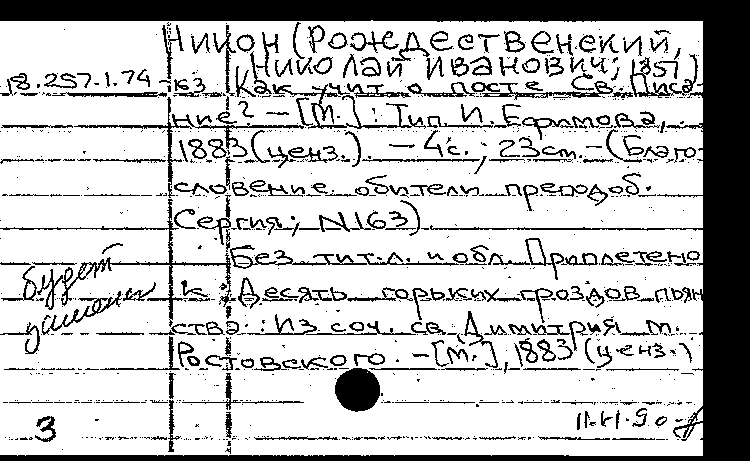 Никон (Рождественский,
Николай Иванович; 1851)
18.257.1.74-к3 Как учит о посте Св. Писа-
ние? – [М.] : Тип. И. Ефимова,
1883 (ценз.). – 4 с.; 23 см. – (Благо-
словение обители преподоб.
Сергия; N163)
Без тит. л. и обл. Приплетено
будет к : Десять горьких гроздов пьян
ства : Из соч. св. Димитрия м.
Ростовского. – [М.], 1883 (ценз.)
3